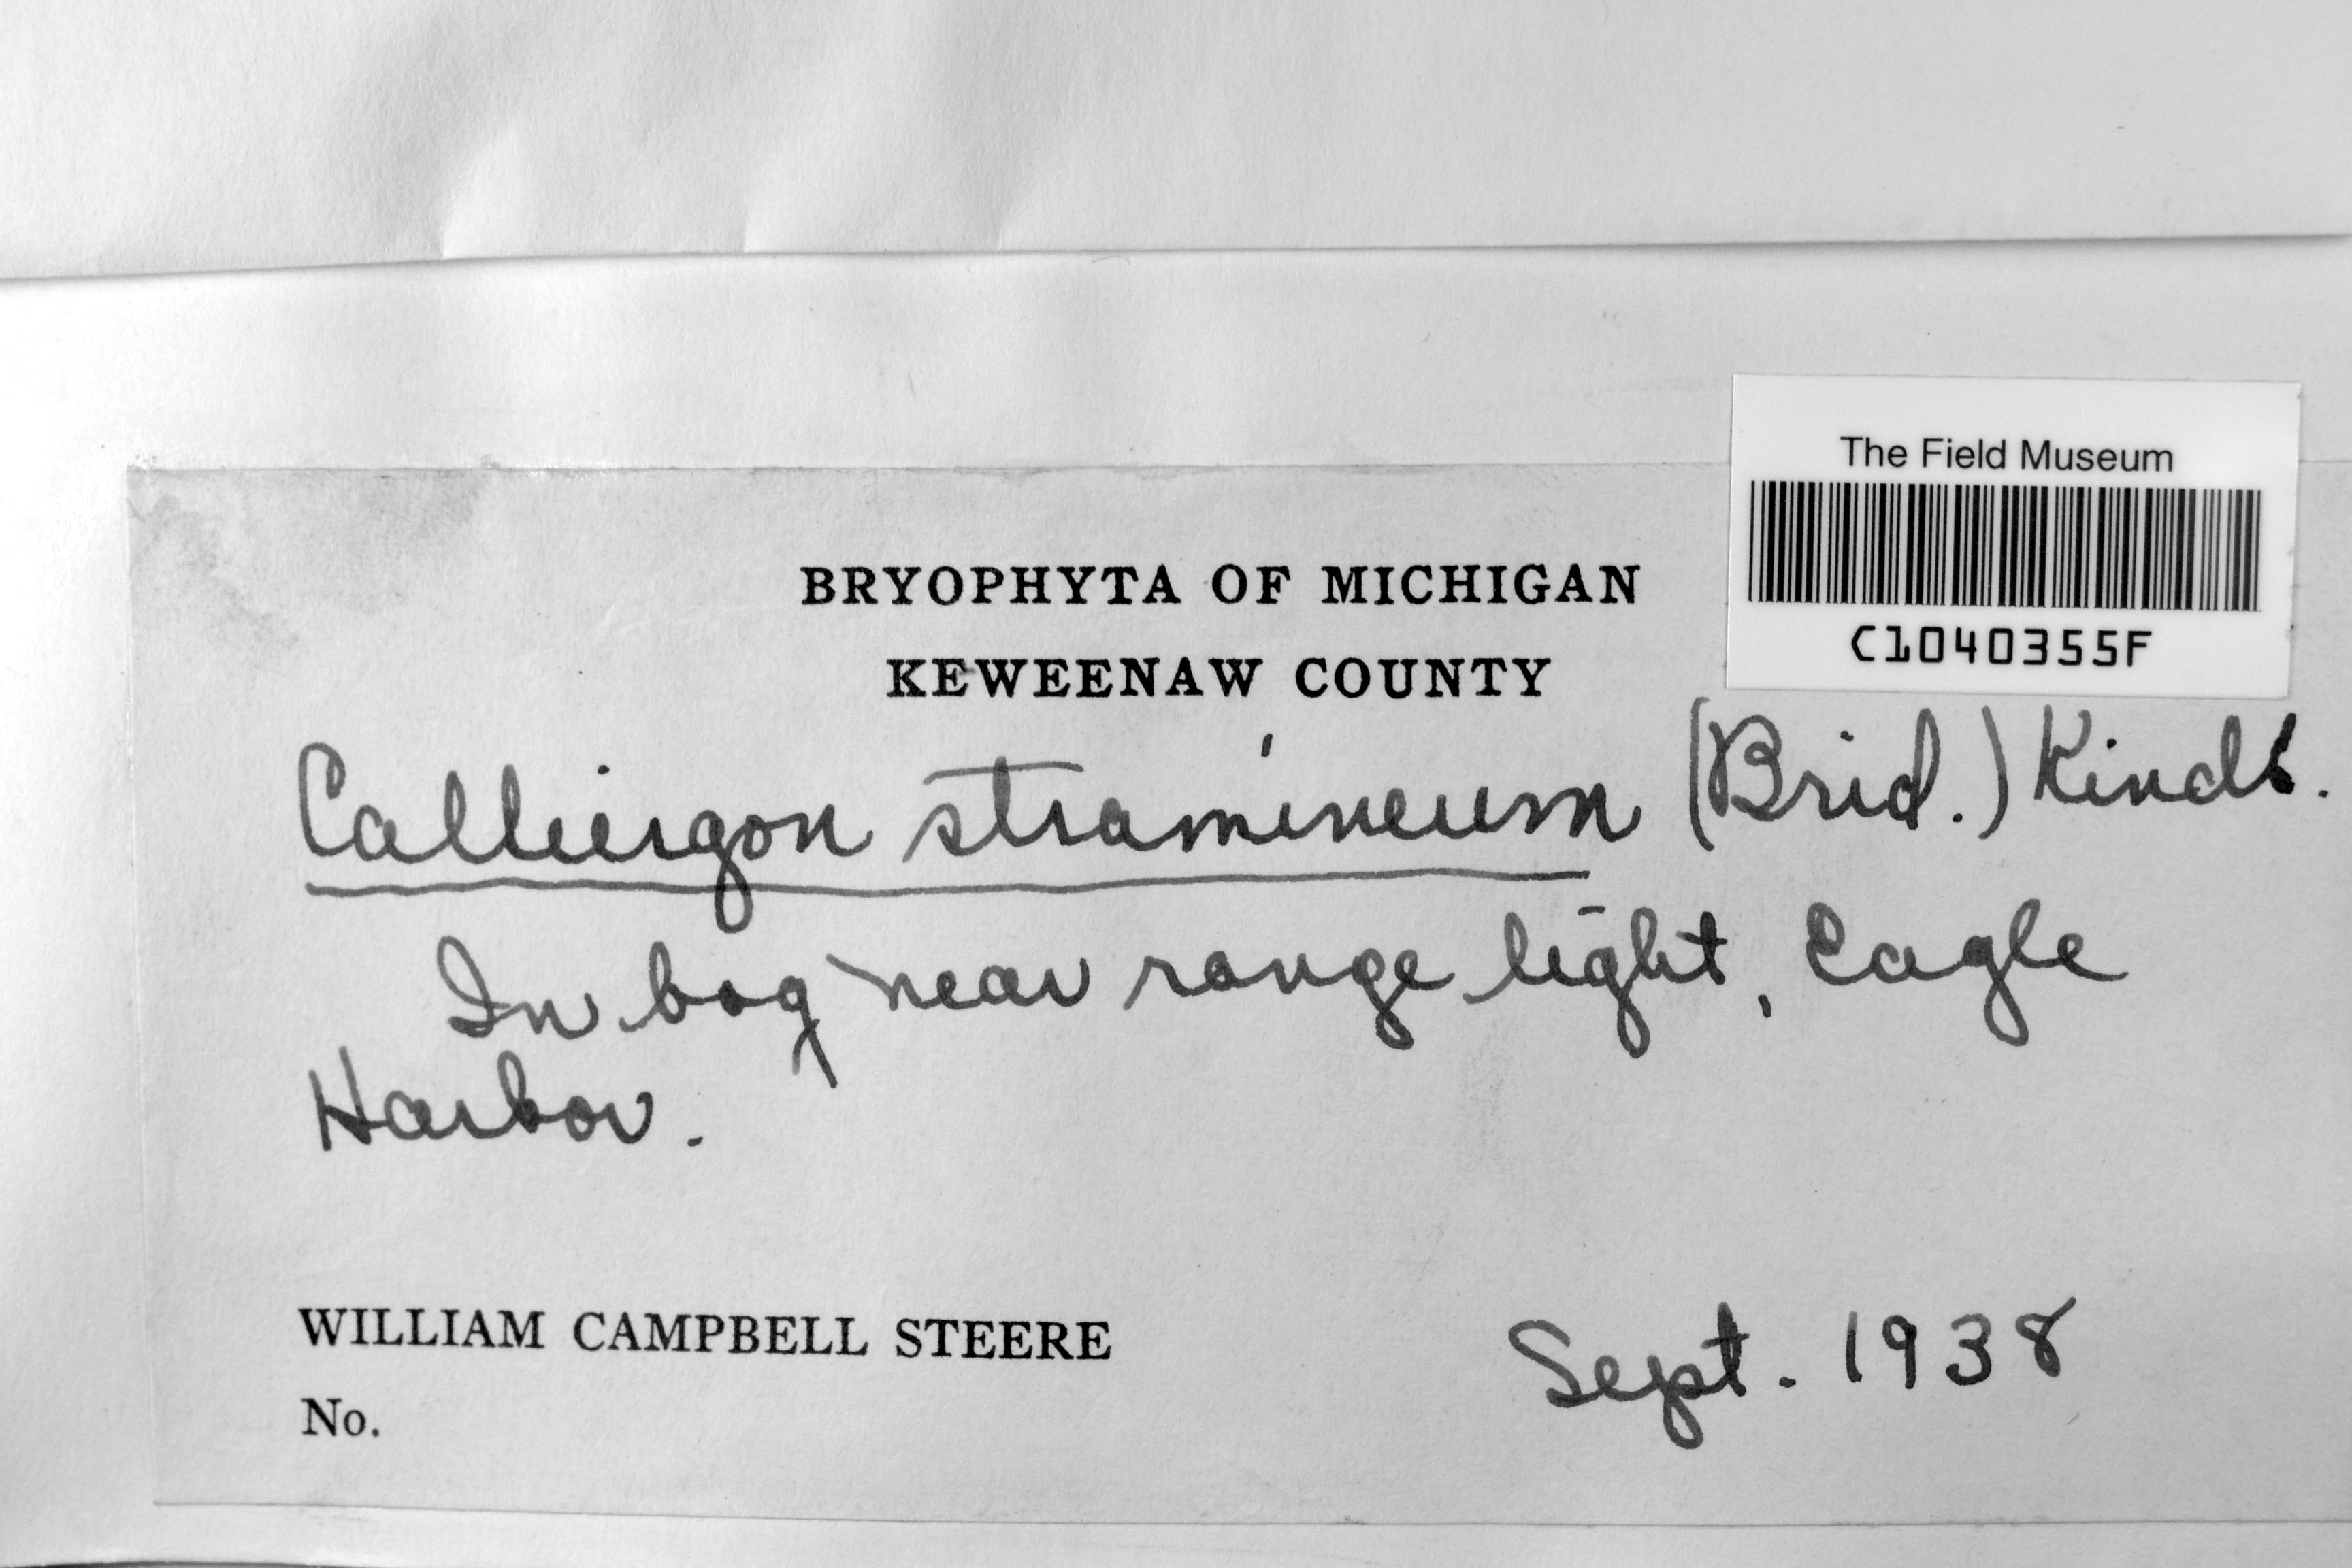 The Field Museum
C1040355F
BRYOPHYTA OF MICHIGAN
KEWEENAW COUNTY
Calliergon stramineum (Brid.) Kindb.
In bog near range light, Eagle
Harbor.
WILLIAM CAMPBELL STEERE
Sept. 1938
No.